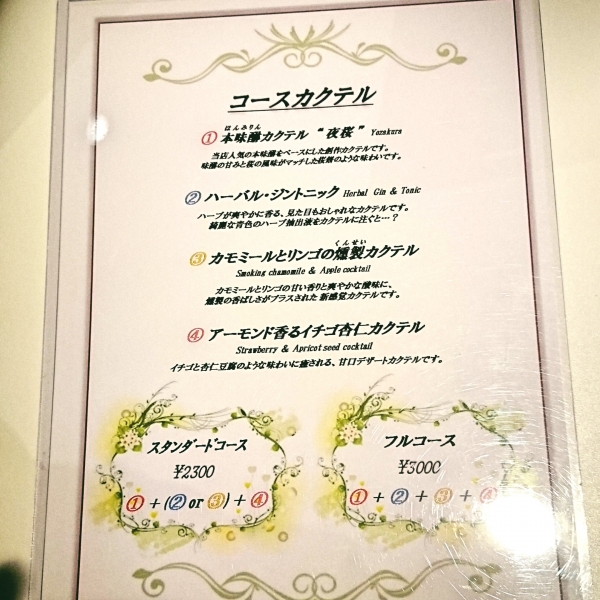 コースカクテル
ほんみりん
① 本味醂カクテル “夜桜” Yozakura
当店人気の本味醂をベースにした創作カクテルです。
味醂の甘みと桜の風味がマッチした桜餅のような味わいです。
② ハーバル・ジントニック Herbal Gin & Tonic
ハーブが爽やかに香る、見た目もおしゃれなカクテルです。
綺麗な青色のハーブ抽出液をカクテルに注ぐと…？
くんせい
③ カモミールとリンゴの燻製カクテル
Smoking chamomile & Apple cocktail
カモミールとリンゴの甘い香りと爽やかな酸味に、
燻製の香ばしさがプラスされた 新感覚カクテルです。
④ アーモンド香るイチゴ杏仁カクテル
Strawberry & Apricot seed cocktail
イチゴと杏仁豆腐のような味わいに癒される、甘口デザートカクテルです。
スタンダードコース
¥2300
① + (② or ③) + ④
フルコース
¥3000
① + ② + ③ + ④